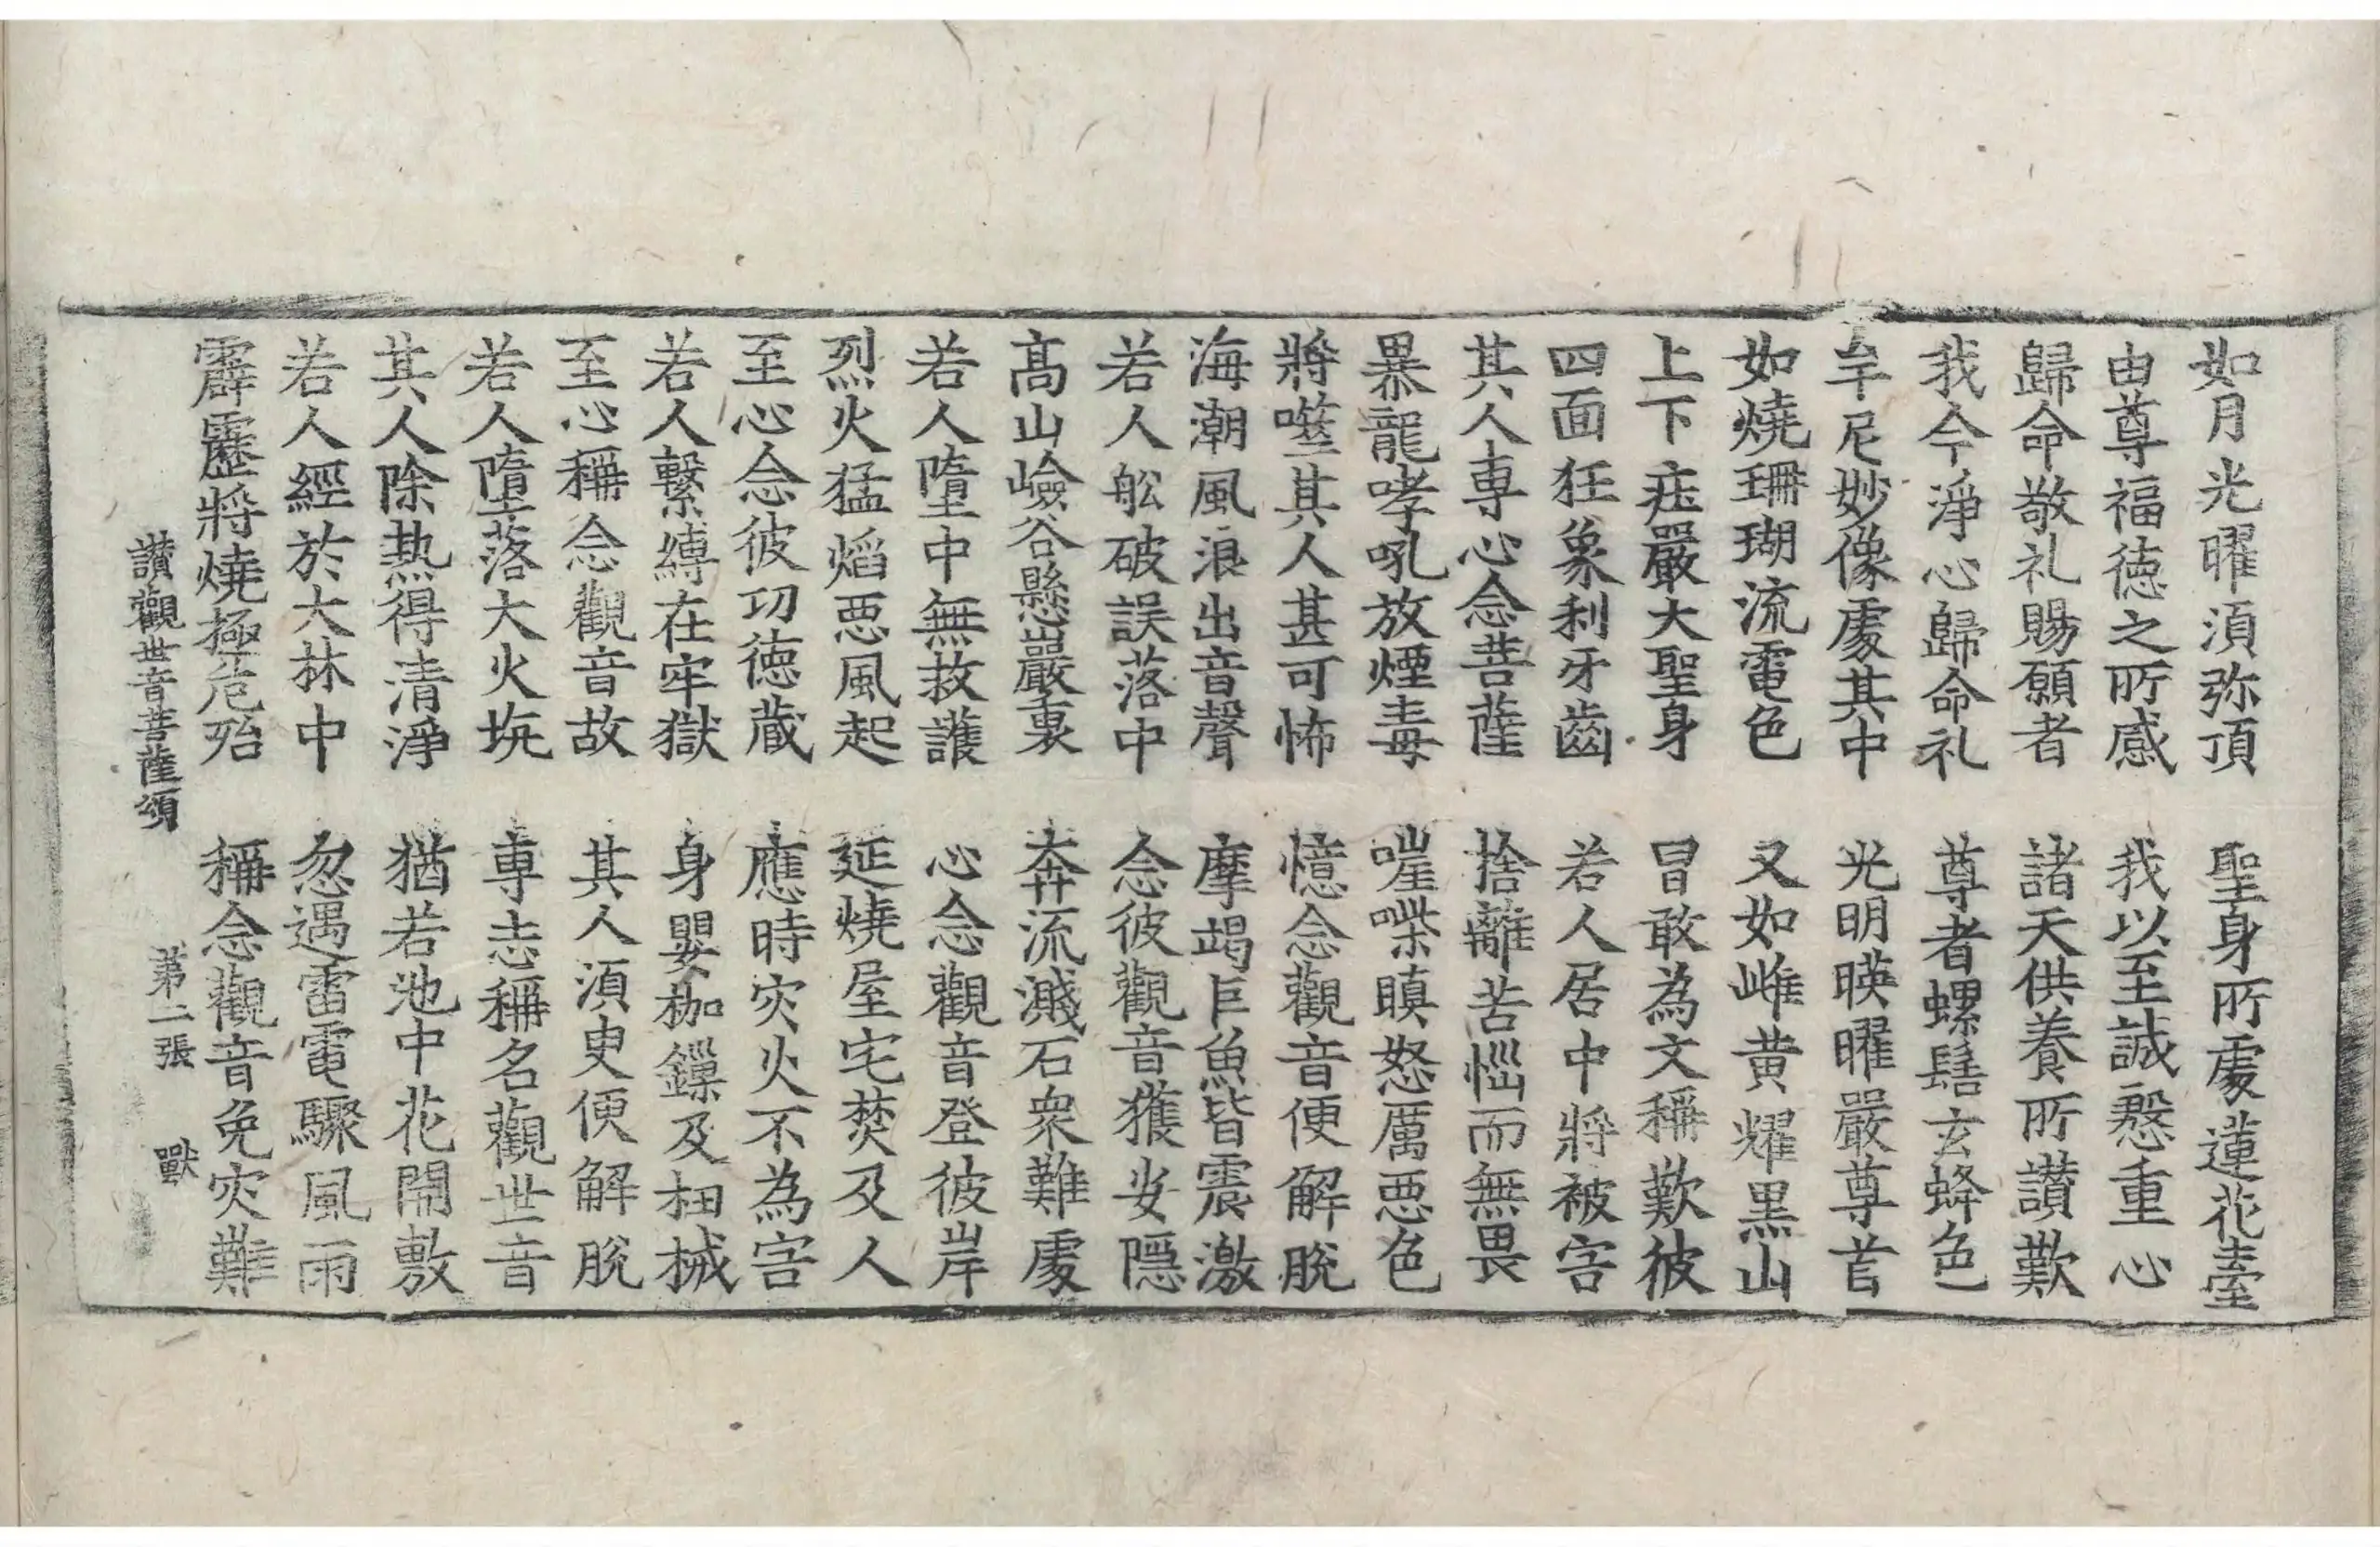 如月光曜湏弥頂　聖身所處蓮花臺
由尊福德之所感　我以至誠慇重心
歸命敬礼賜願者　諸天供養所讃歎
我今淨心歸命礼　尊者螺髻玄蜂色
牟尼妙像處其中　光明暎曜嚴尊首
如燒珊瑚流電色　又如雌黄耀黒山
上下庄嚴大聖身　冒敢為文稱歎彼
四面狂象利牙齒　若人居中將被害
其人專心念菩薩　捨離苦惱而無畏
暴龍哮吼放煙毒　嘊喍瞋怒厲惡色
將噬其人甚可怖　憶念觀音便解脫
海潮風浪出音聲　摩竭巨魚皆震激
若人舩破誤落中　念彼觀音獲安隱
髙山嶮谷懸巖裏　奔流濺石衆難處
若人墮中無救護　心念觀音登彼岸
烈火猛焰惡風起　延燒屋宅焚及人
至心念彼功德藏　應時灾火不為害
若人繫縛在牢獄　身嬰枷鏁及杻械
至心稱念觀音故　其人湏臾便解脫
若人墮落大火坑　專志稱名觀世音
其人除熱得清淨　猶若池中花開敷
若人經於大林中　忽遇雷電驟風雨
霹靂將燒極危殆　稱念觀音免灾難
讃觀世音菩薩頌　第二張　獸